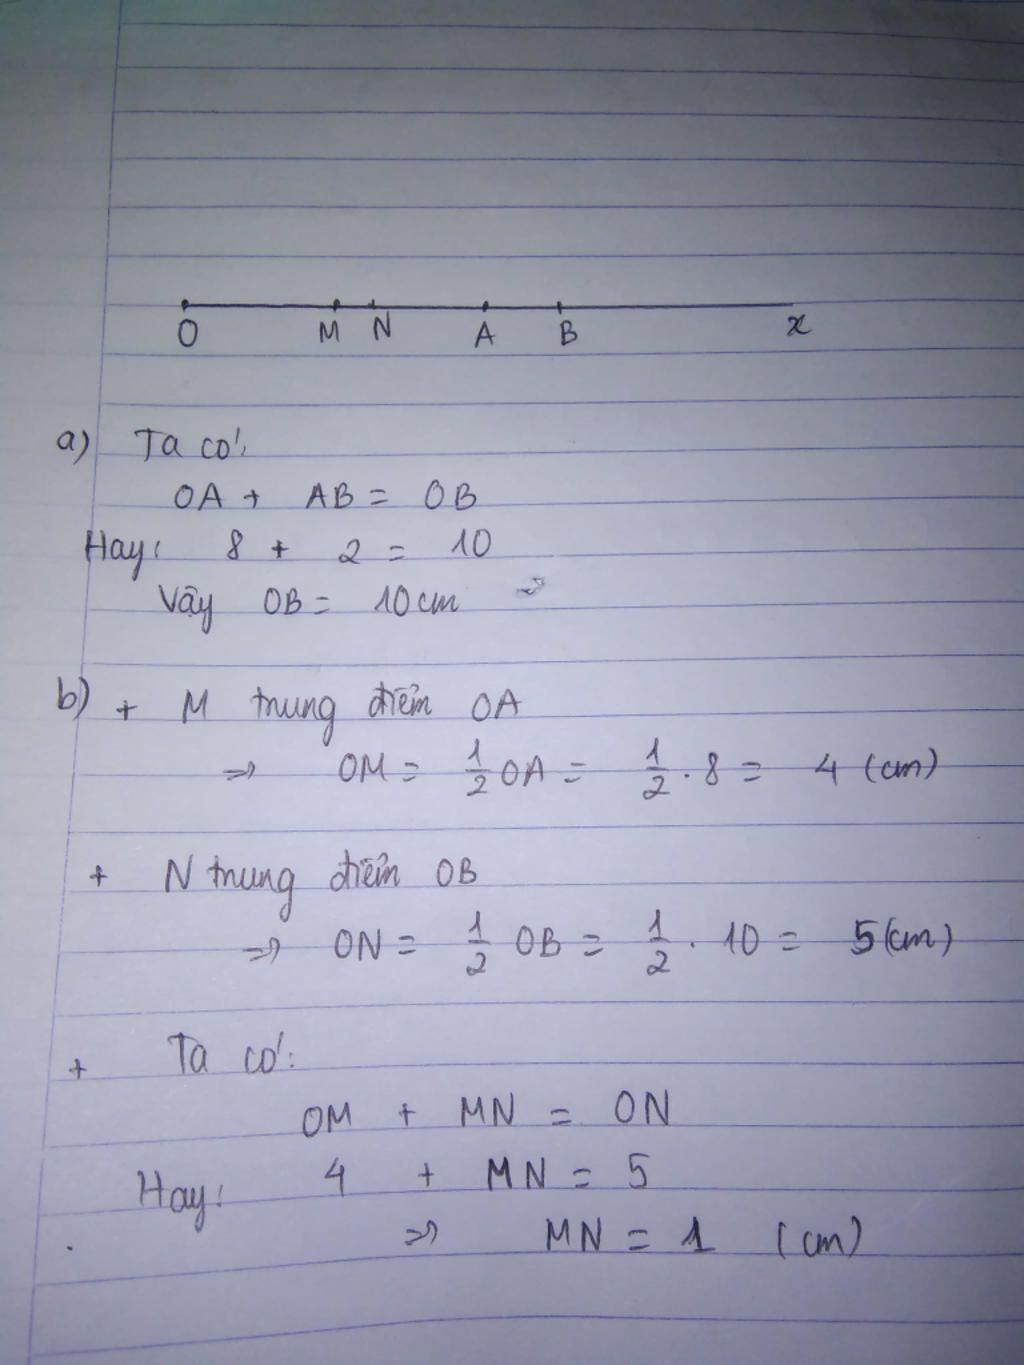 O M N A B x
a) Ta có:
OA + AB = OB
Hay: 8 + 2 = 10
Vậy OB = 10cm
b) + M trung điểm OA
=> OM = 1/2 OA = 1/2 . 8 = 4 (cm)
+ N trung điểm OB
=> ON = 1/2 OB = 1/2 . 10 = 5 (cm)
+ Ta có:
OM + MN = ON
Hay: 4 + MN = 5
=> MN = 1 (cm)